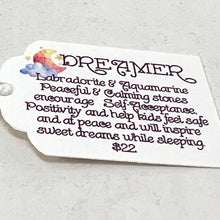 DREAMER
Labradorite & Aquamarine
Peaceful & Calming stones
encourage Self Acceptance,
Positivity and help kids feel safe
and at peace and will inspire
sweet dreams while sleeping.
$22